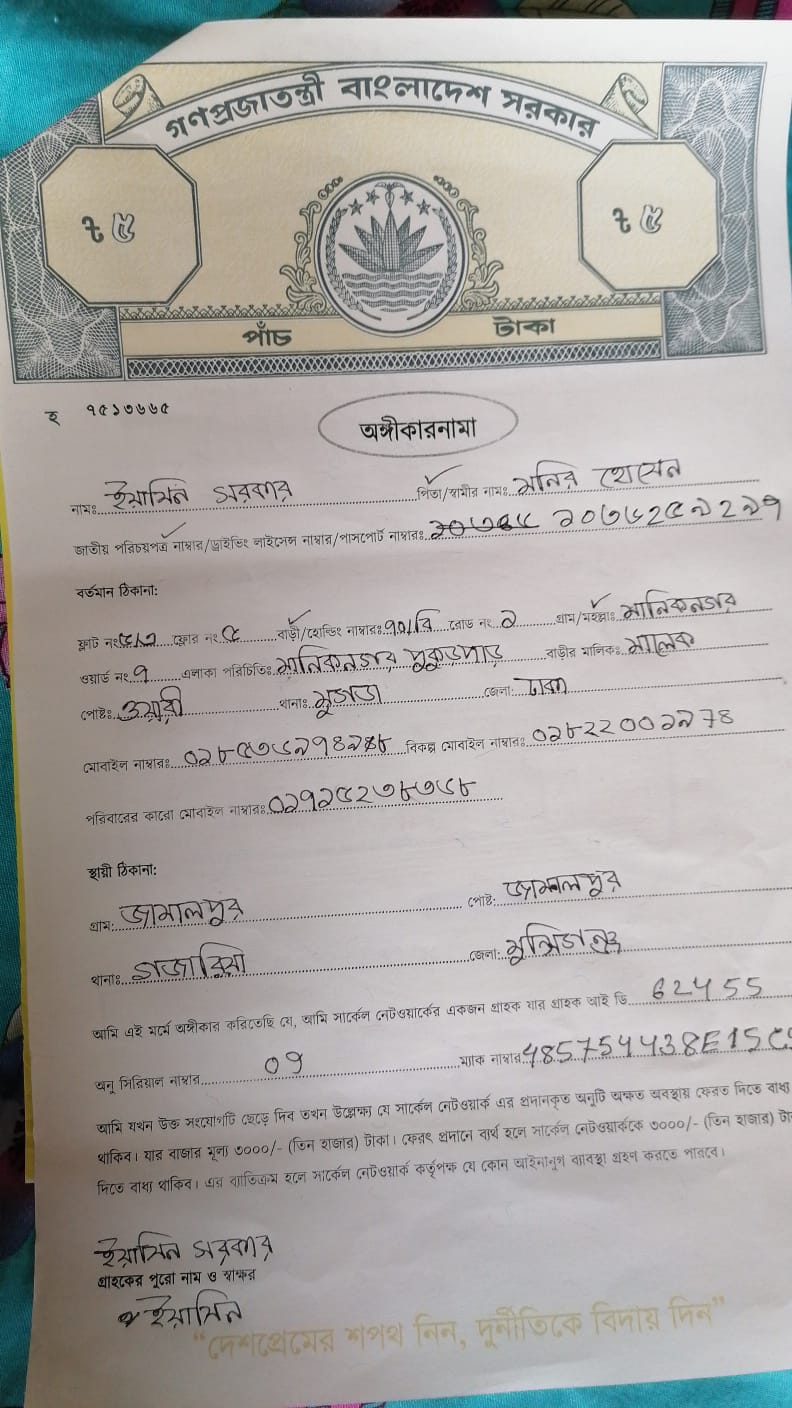 গণপ্রজাতন্ত্রী বাংলাদেশ সরকার
৳ ৫ ৳ ৫
পাঁচ টাকা
হ ৭৫১৩৬৬৫
অঙ্গীকারনামা
নামঃ ইয়াসিন সরকার পিতা/স্বামীর নামঃ মনির হোসেন
জাতীয় পরিচয়পত্র নাম্বার/ড্রাইভিং লাইসেন্স নাম্বার/পাসপোর্ট নাম্বারঃ
বর্তমান ঠিকানা:
ফ্লাট নংঃ ফ্লোর নংঃ ৫ বাড়ী/হোল্ডিং নাম্বারঃ ৭০/বি রোড নং: ১ গ্রাম/মহল্লাঃ মানিকনগর
ওয়ার্ড নংঃ ৭ এলাকা পরিচিতিঃ মানিকনগর পুকুরপাড় বাড়ীর মালিকঃ মালেক
পোষ্টঃ ওয়ারী থানাঃ মুগদা জেলা: ঢাকা
মোবাইল নাম্বারঃ বিকল্প মোবাইল নাম্বারঃ
পরিবারের কারো মোবাইল নাম্বারঃ ০১৭১৫২৩৮৩৫৮
স্থায়ী ঠিকানা:
গ্রাম: জামালপুর পোষ্ট: জামালপুর
থানাঃ গজারিয়া জেলা: মুন্সিগঞ্জ
আমি এই মর্মে অঙ্গীকার করিতেছি যে, আমি সার্কেল নেটওয়ার্কের একজন গ্রাহক যার গ্রাহক আই ডি 62455
অনু সিরিয়াল নাম্বার 09 ম্যাক নাম্বার 485754438E15C
আমি যখন উক্ত সংযোগটি ছেড়ে দিব তখন উল্লেক্ষ্য যে সার্কেল নেটওয়ার্ক এর প্রদানকৃত অনুটি অক্ষত অবস্থায় ফেরত দিতে বাধ্য
থাকিব। যার বাজার মূল্য ৩০০০/- (তিন হাজার) টাকা। ফেরৎ প্রদানে ব্যর্থ হলে সার্কেল নেটওয়ার্ককে ৩০০০/- (তিন হাজার)
দিতে বাধ্য থাকিব। এর ব্যতিক্রম হলে সার্কেল নেটওয়ার্ক কর্তৃপক্ষ যে কোন আইনানুগ ব্যাবস্থা গ্রহণ করতে পারবে।
ইয়াসিন সরকার
গ্রাহকের পুরো নাম ও স্বাক্ষর
ইয়াসিন
“দেশপ্রেমের শপথ নিন, দুর্নীতিকে বিদায় দিন”